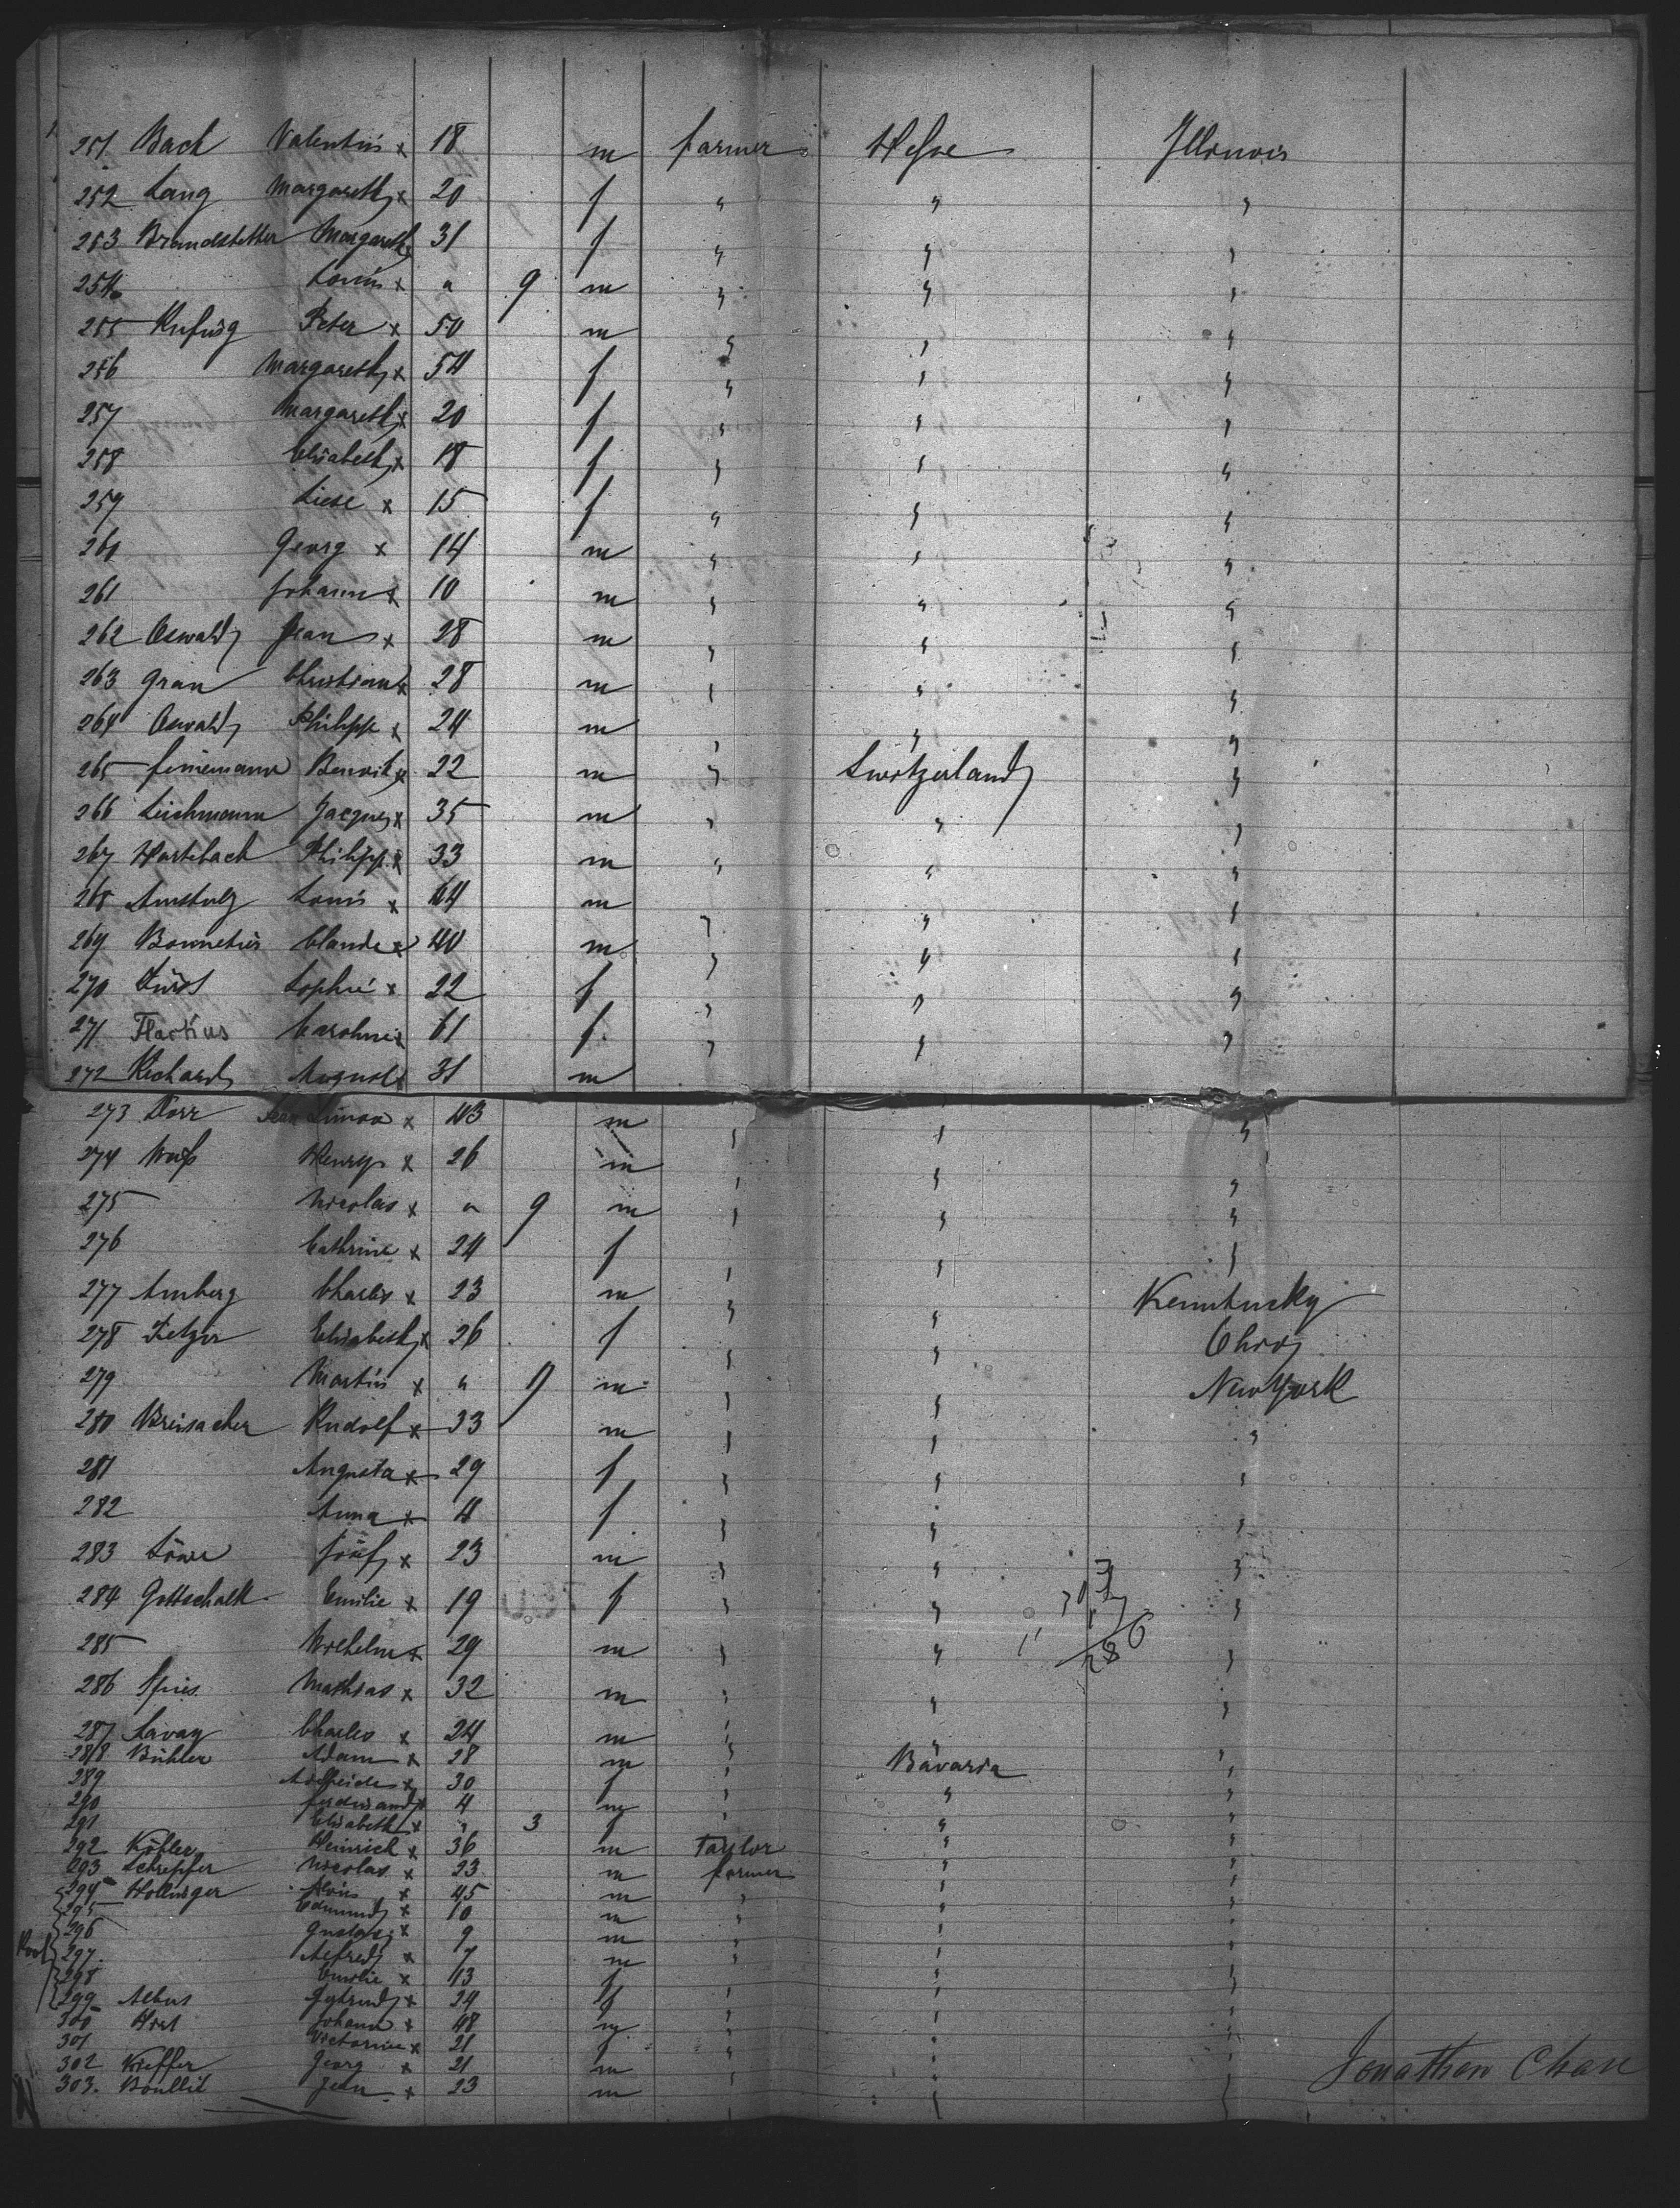 251. Bach Valentin x 18 m farmer Hesse Illinois
252 Lang Margareth x 20 f " " "
253 Brandstetter Margareth 31 f " " "
254 Louis x " 9 m " " "
255 Peter x 50 m " " "
256 Margareth x 54 f " " "
257 Margareth x 20 f " " "
258 Elisabeth x 18 f " " "
259 Liese x 15 f " " "
260 Georg x 14 m " " "
261 Johann x 10 m " " "
262 Oswald Jean x 28 m " " "
263 Grau Christian x 28 m " " "
264 Oswald Philipp x 24 m " " "
265 Benoit x 22 m " Switzerland "
266 Leichmann Jacques x 35 m " " "
267 Hartebach Philipp x 33 m " " "
268 Amstutz Louis x 44 m " " "
269 Claude x 40 m " " "
270 Sophie x 22 f " " "
271 Caroline x 61 f " " "
272 Richard August x 31 m
273 Dorr Simon x 43 m " " "
274 Henry x 26 m " " "
275 Nicolas x " 9 m " " "
276 Cathrine x 24 f " " "
277 Amberg Charles x 23 m " " Kenntucky
278 Elisabeth x 26 f " " Ohio
279 Martin x " 9 m " " New York
280 Breisacher Rudolf x 33 m " " "
281 Augusta x 29 f " " "
282 Anna x 4 f " " "
283 Löwe Josef x 23 m " " "
284 Gottschalk Emilie x 19 f " " "
285 Wilhelm x 29 m " " "
286 Spies Mathias x 32 m " " "
287 Lavay Charles x 24 m " " "
288 Bühler Adam x 28 m " Bavaria "
289 Adelheide x 30 f " " "
290 Ferdinand x 4 m " " "
291 Elisabeth x " 3 f " " "
292 Köhler Heinrich x 36 m Taylor " "
293 Schrepfer Nicolas x 23 m farmer " "
294 Hollinger Alois x 45 m " " "
295 Edmund x 10 m " " "
296 Gustav x 9 m " " "
297. Alfred x 7 m " " "
298 Emilie x 43 f " " "
299 Albus Gertrud x 24 f " " "
300 Johann x 48 m " " "
301 Victorine x 21 f " " "
302 Kieffer Georg x 21 m " " "
303. Boullie Jean x 23 m " " "
Jonathan Chase